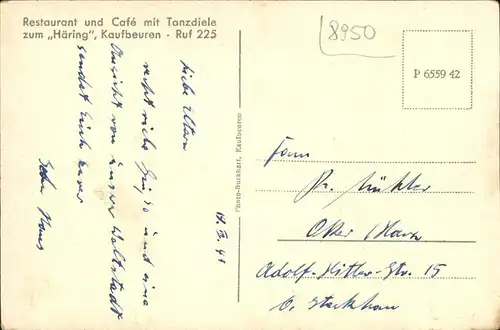 Restaurant und Café mit Tanzdiele
zum „Häring“, Kaufbeuren - Ruf 225
8950
P 6559 42
Liebe Eltern
recht viele Grüße und eine
Ansicht von unserer Weltstadt
sendet Euch euer
Sohn Hans
Photo-Burkhart, Kaufbeuren
Oker / Harz
Adolf-Hitler-Str. 15